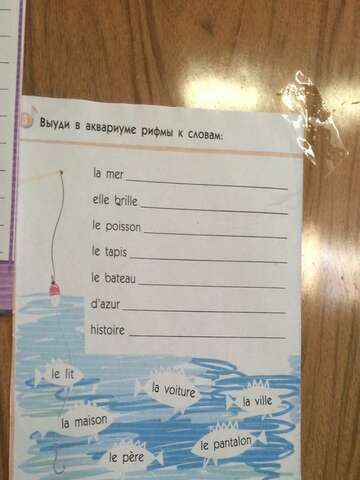 Выуди в аквариуме рифмы к словам:
la mer
elle brille
le poisson
le tapis
le bateau
d'azur
histoire
le lit
la voiture
la ville
la maison
le père
le pantalon